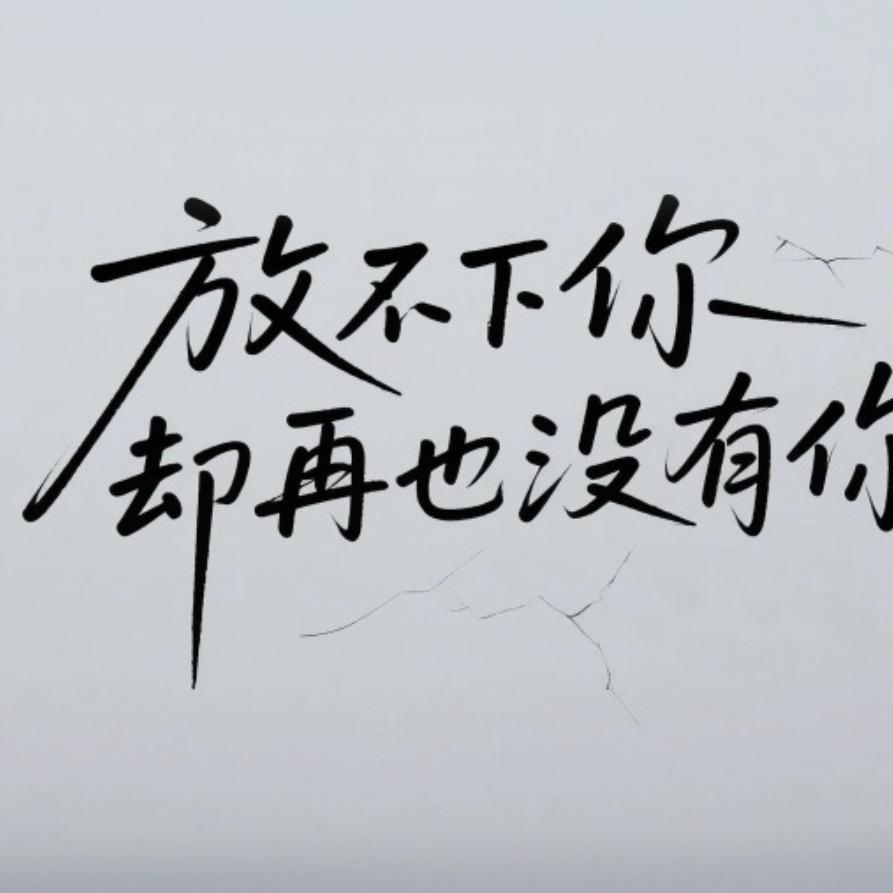 放不下你
却再也没有你